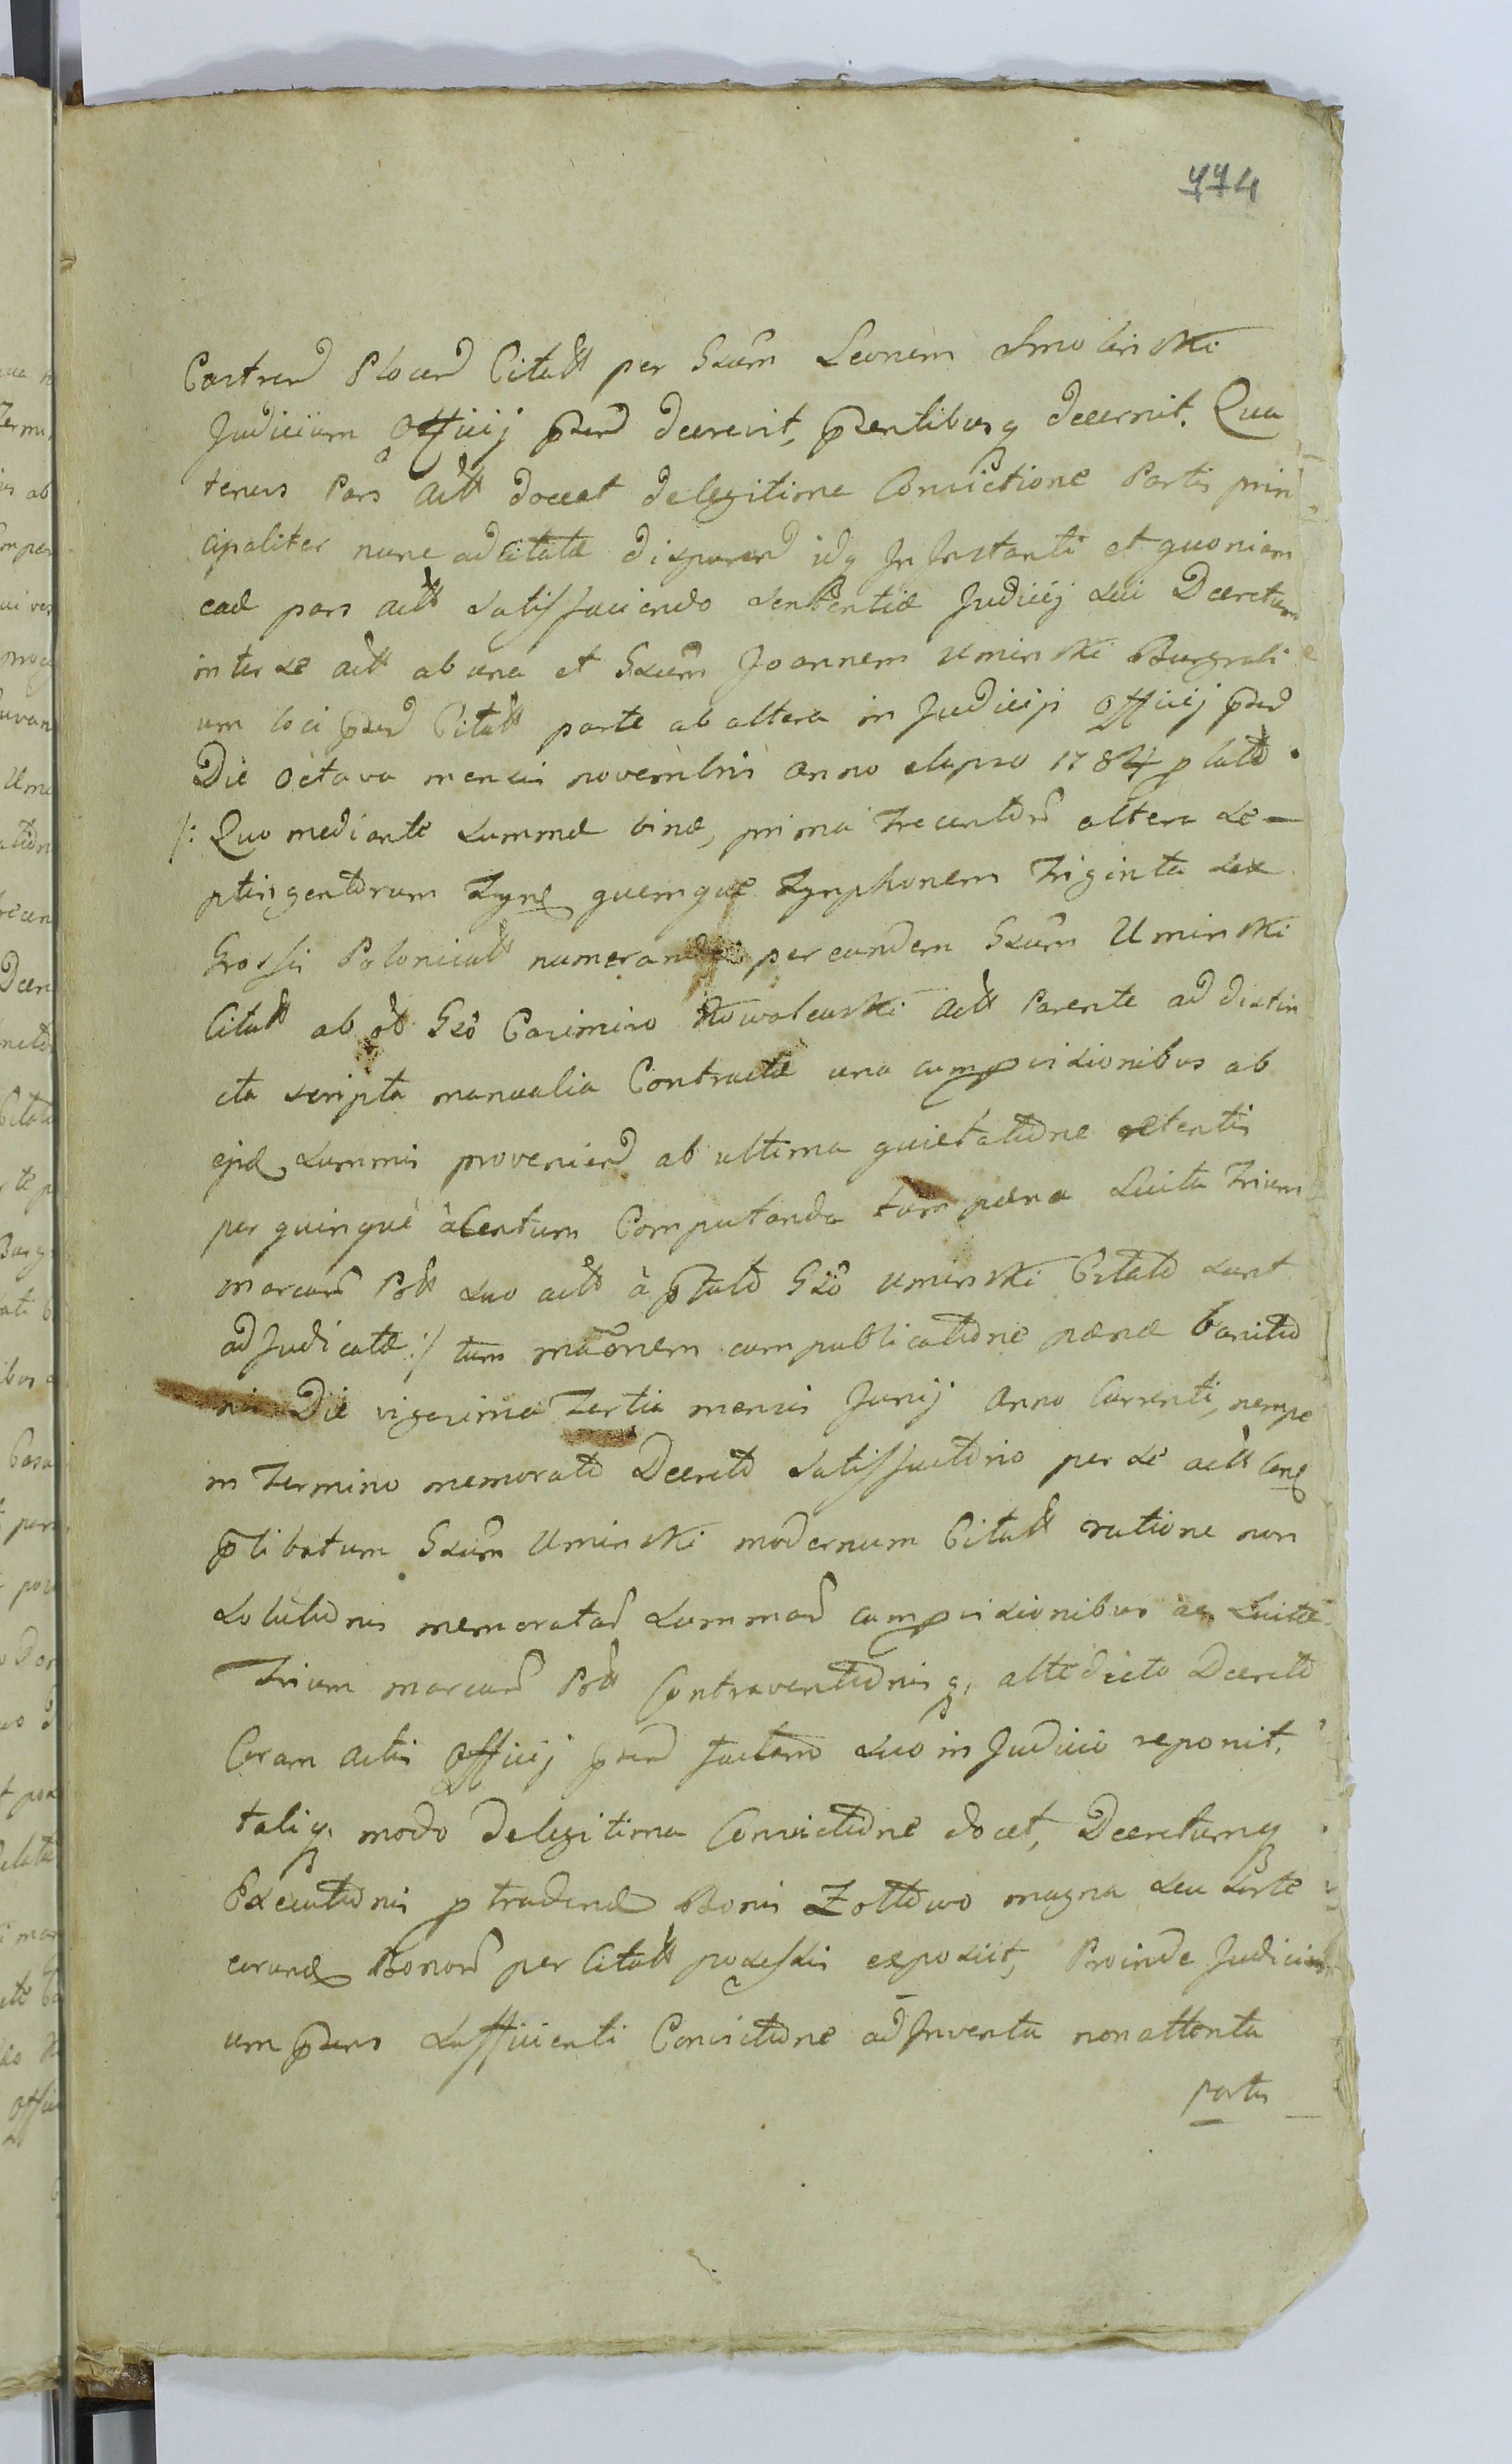 774
Castren Plocen Citatt per Gsum Leonem Smolinski
Judicium Officij psen decrevit, psentibusq decernit. Qua
tenus Pars Actt doceat de legitima Convictione Partis prin
cipaliter nunc adcitatæ disparen idq In Instanti et quoniam
ead pars actt satisfaciendo sententiæ Judicij sui Decretum
inter se actt ab una et Gsum Joannem Uminski Burgrabi
um loci psen Citatt parte ab altera in Judicijs Officij psen
Die octava mensis novembris anno elapso 1784 plato
/: Quo mediante summæ binæ, prima Trecentoru altera se-
ptingentorum Tynf quemque Tynphonem Triginta sex
Grossis Polonicalt numerando per eundem Gsum Uminski
Citatt ab ol Gso Casimiro Kowalewski actt Parente ad distin
cta scripta manualia Contractæ una cum pvisionibus ab
ejsd summis provenien ab ultima quietatione retentis
per quinque à Centum Computanda tum pæna Luita Trium
marcaru Polt suo actt à pfato Gso Uminski Citato sunt
adjudicatæ :/ tum mãonem cum publicatione pænæ banitio
nis Die vigesima Tertia mensis Junij Anno Currenti, nempe
in Termino memorato Decreto satisfactorio per se actt Conq
plibatum Gsum Uminski modernum Citatt ratione non
solutionis memoratar summar cum pvisionibus ac Luitæ
Trium marcaru Polt Contraventionisq, altedicto Decreto
Coram actis Officij psen factam suo in Judicio reponit,
taliq modo de legitima Convictione docet, Decretumq
Executionis p traden Bonis Zottowo magna seu sorte
eorund Bonoru per Citatt possessis exposcit, Proinde Judici
um psens sufficienti Convictione adinventa non attenta
partis